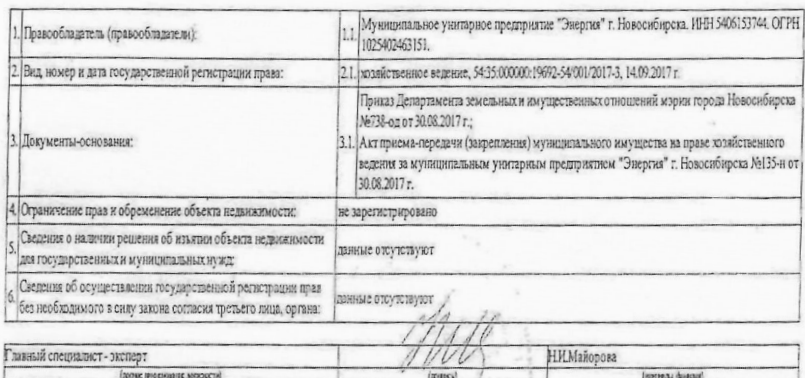 1. Правообладатель (правообладатели): 1.1. Муниципальное унитарное предприятие "Энергия" г. Новосибирска. ИНН 5406153744. ОГРН
1025402463151.
2. Вид, номер и дата государственной регистрации права: 2.1. хозяйственное ведение, 54:35:000000:19692-54/001/2017-3, 14.09.2017 г.
3. Документы-основания: 3.1. Приказ Департамента земельных и имущественных отношений мэрии города Новосибирска
№738-од от 30.08.2017 г.;
Акт приема-передачи (закрепления) муниципального имущества на праве хозяйственного
ведения за муниципальным унитарным предприятием "Энергия" г. Новосибирска №135-н от
30.08.2017 г.
4. Ограничение прав и обременение объекта недвижимости: не зарегистрировано
5. Сведения о наличии решения об изъятии объекта недвижимости
для государственных и муниципальных нужд: данные отсутствуют
6. Сведения об осуществлении государственной регистрации прав
без необходимого в силу закона согласия третьего лица, органа: данные отсутствуют
Главный специалист - эксперт Н.И.Майорова
(полное наименование должности) (подпись) (инициалы, фамилия)